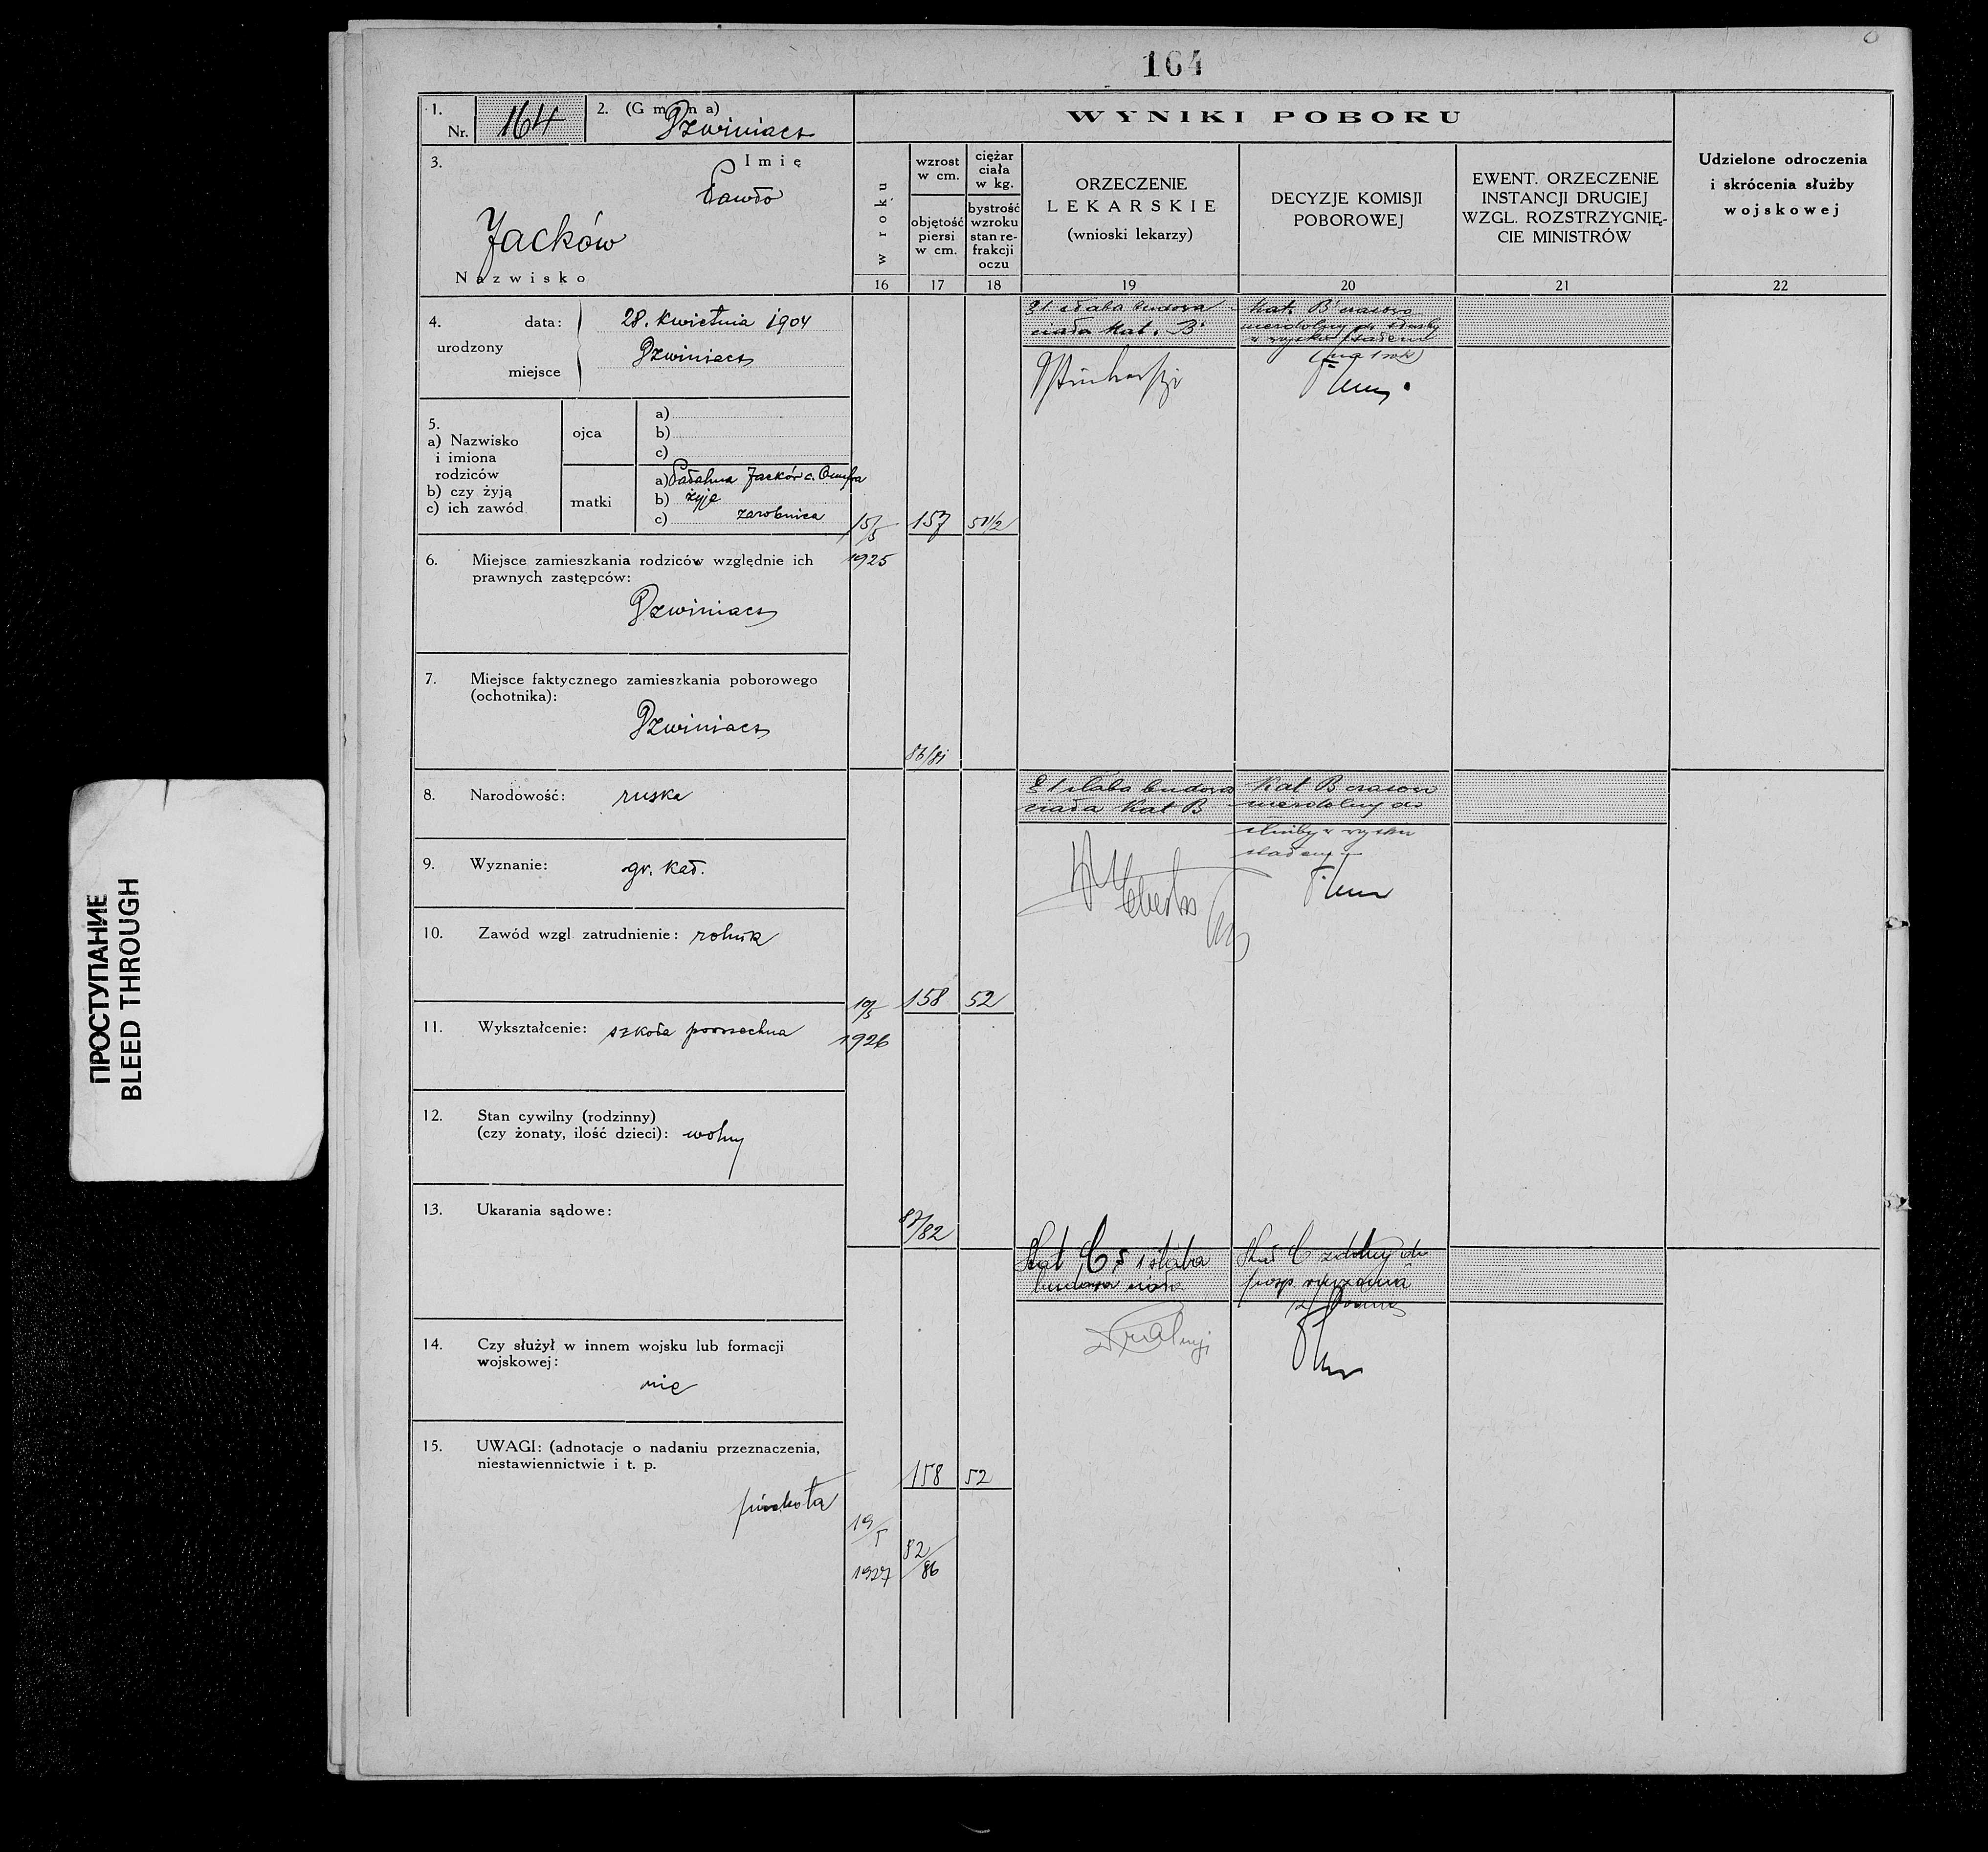 164
1.
Nr. 164
2. (Gmina)
Dzwiniacz
3. Imię
Pawło
Jacków
Nazwisko
4. urodzony
data: 28. kwietnia 1904
miejsce Dzwiniacz
5.
a) Nazwisko
i imiona
rodziców
b) czy żyją
c) ich zawód
ojca
a)
b)
c)
matki
a) Jacków c.
b) żyje
c) zarobnica
6. Miejsce zamieszkania rodziców względnie ich
prawnych zastępców:
Dzwiniacz
7. Miejsce faktycznego zamieszkania poborowego
(ochotnika):
Dzwiniacz
8. Narodowość: ruska
9. Wyznanie: gr. kat.
10. Zawód wzgl. zatrudnienie: rolnik
11. Wykształcenie: szkoła powszechna
12. Stan cywilny (rodzinny)
(czy żonaty, ilość dzieci): wolny
13. Ukarania sądowe:
14. Czy służył w innem wojsku lub formacji
wojskowej:
nie
15. UWAGI: (adnotacje o nadaniu przeznaczenia,
niestawiennictwie i t. p.
piechota
WYNIKI POBORU
w roku
16
wzrost
w cm.
objętość
piersi
w cm.
17
ciężar
ciała
w kg.
bystrość
wzroku
stan re-
frakcji
oczu
18
ORZECZENIE
LEKARSKIE
(wnioski lekarzy)
19
DECYZJE KOMISJI
POBOROWEJ
20
EWENT. ORZECZENIE
INSTANCJI DRUGIEJ
WZGL. ROZSTRZYGNIĘ-
CIE MINISTRÓW
21
Udzielone odroczenia
i skrócenia służby
wojskowej
22
15/5
1925
157
51 1/2
86/81
słaba budowa
ciała Kat. B
Kat. B czasowo
niezdolny do służby
w wojsku stałem
(na 1 rok)
19/5
1926
158
52
87/82
słaba budowa
ciała Kat B
Kat B czasowo
niezdolny do
służby w wojsku
stałem
19/5
1927
158
52
82/86
Kat C słaba
budowa
Kat C zdolny do
posp. ruszenia
ПРОСТУПАНИЕ
BLEED THROUGH